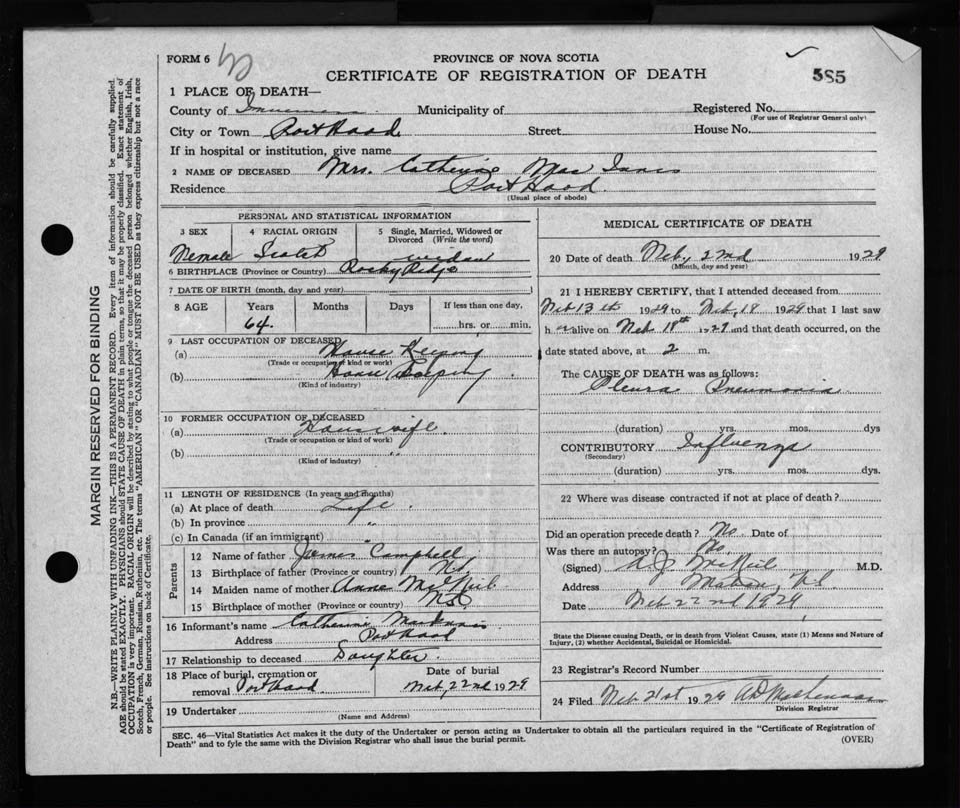 FORM 6
PROVINCE OF NOVA SCOTIA
CERTIFICATE OF REGISTRATION OF DEATH
585
1 PLACE OF DEATH—
County of Inverness Municipality of Registered No.
(For use of Registrar General only)
City or Town Port Hood Street House No.
If in hospital or institution, give name
2 NAME OF DECEASED Mrs. Catherine Mac Innes
Residence Port Hood.
(Usual place of abode)
PERSONAL AND STATISTICAL INFORMATION
3 SEX 4 RACIAL ORIGIN 5 Single, Married, Widowed or Divorced (Write the word)
Female Scotch widow
6 BIRTHPLACE (Province or Country) Rocky Ridge
7 DATE OF BIRTH (month, day and year)
8 AGE Years Months Days If less than one day,
64. hrs. or min.
9 LAST OCCUPATION OF DECEASED
(a) House Keeping
(Trade or occupation or kind or work)
(b) House Keeping
(Kind of industry)
10 FORMER OCCUPATION OF DECEASED
(a) Housewife
(Trade or occupation or kind or work)
(b) "
(Kind of industry)
11 LENGTH OF RESIDENCE (In years and months)
(a) At place of death Life
(b) In province "
(c) In Canada (if an immigrant) "
Parents
12 Name of father James Campbell
13 Birthplace of father (Province or country) N.S.
14 Maiden name of mother Anne McNeil
15 Birthplace of mother (Province or country) N.S.
16 Informant's name Catherine MacInnis
Address Port Hood
17 Relationship to deceased Daughter
18 Place of burial, cremation or removal Port Hood Date of burial Feb, 22nd 1929
19 Undertaker
(Name and Address)
MEDICAL CERTIFICATE OF DEATH
20 Date of death Feb. 2nd 1929
(Month, day and year)
21 I HEREBY CERTIFY, that I attended deceased from
Feb 13th 1929 to Feb, 18 1929 that I last saw
her alive on Feb 18th 1929 and that death occurred, on the
date stated above, at 2 m.
The CAUSE OF DEATH was as follows:
Pleura Pneumonia
(duration) yrs. mos. dys
CONTRIBUTORY Influenza
(Secondary)
(duration) yrs. mos. dys.
22 Where was disease contracted if not at place of death?
Did an operation precede death? No Date of
Was there an autopsy? No
(Signed) A J McNeil M.D.
Address Mabou, N.S.
Date Feb 22nd 1929
State the Disease causing Death, or in death from Violent Causes, state (1) Means and Nature of
Injury, (2) whether Accidental, Suicidal or Homicidal.
23 Registrar's Record Number
24 Filed Feb 21st 1929 AD MacLennan
Division Registrar
SEC. 46—Vital Statistics Act makes it the duty of the Undertaker or person acting as Undertaker to obtain all the particulars required in the "Certificate of Registration of
Death" and to fyle the same with the Division Registrar who shall issue the burial permit.
(OVER)
MARGIN RESERVED FOR BINDING
N.B.—WRITE PLAINLY WITH UNFADING INK—THIS IS A PERMANENT RECORD. Every item of information should be carefully supplied.
AGE should be stated EXACTLY. PHYSICIANS should STATE CAUSE OF DEATH in plain terms, so that it may be properly classified. Exact statement of
OCCUPATION is very important. RACIAL ORIGIN will be described by stating to what people or tongue the deceased person belonged whether English, Irish,
Scotch, French, German, Russian, Ruthenian, etc. The terms "AMERICAN" OR "CANADIAN" MUST NOT BE USED as they express citizenship but not a race
or people. See instructions on back of Certificate.